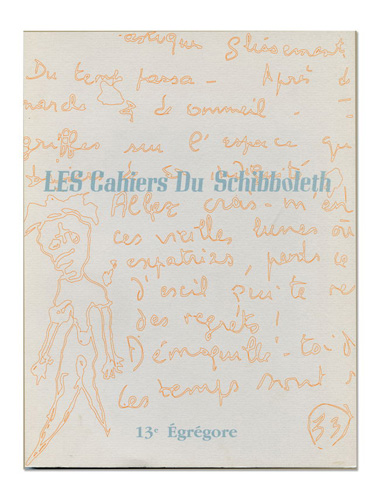 Glissement
Du temps passa - Après d
nards & de sommeil -
griffes sur l'espace que
LES Cahiers Du Schibboleth
Allez cras - m'en
ces vieilles lunes où
expatriés, perds ce
d'exil qui te re
des regrets !
Démaquille-toi d
Les temps sont
13e Égrégore
33